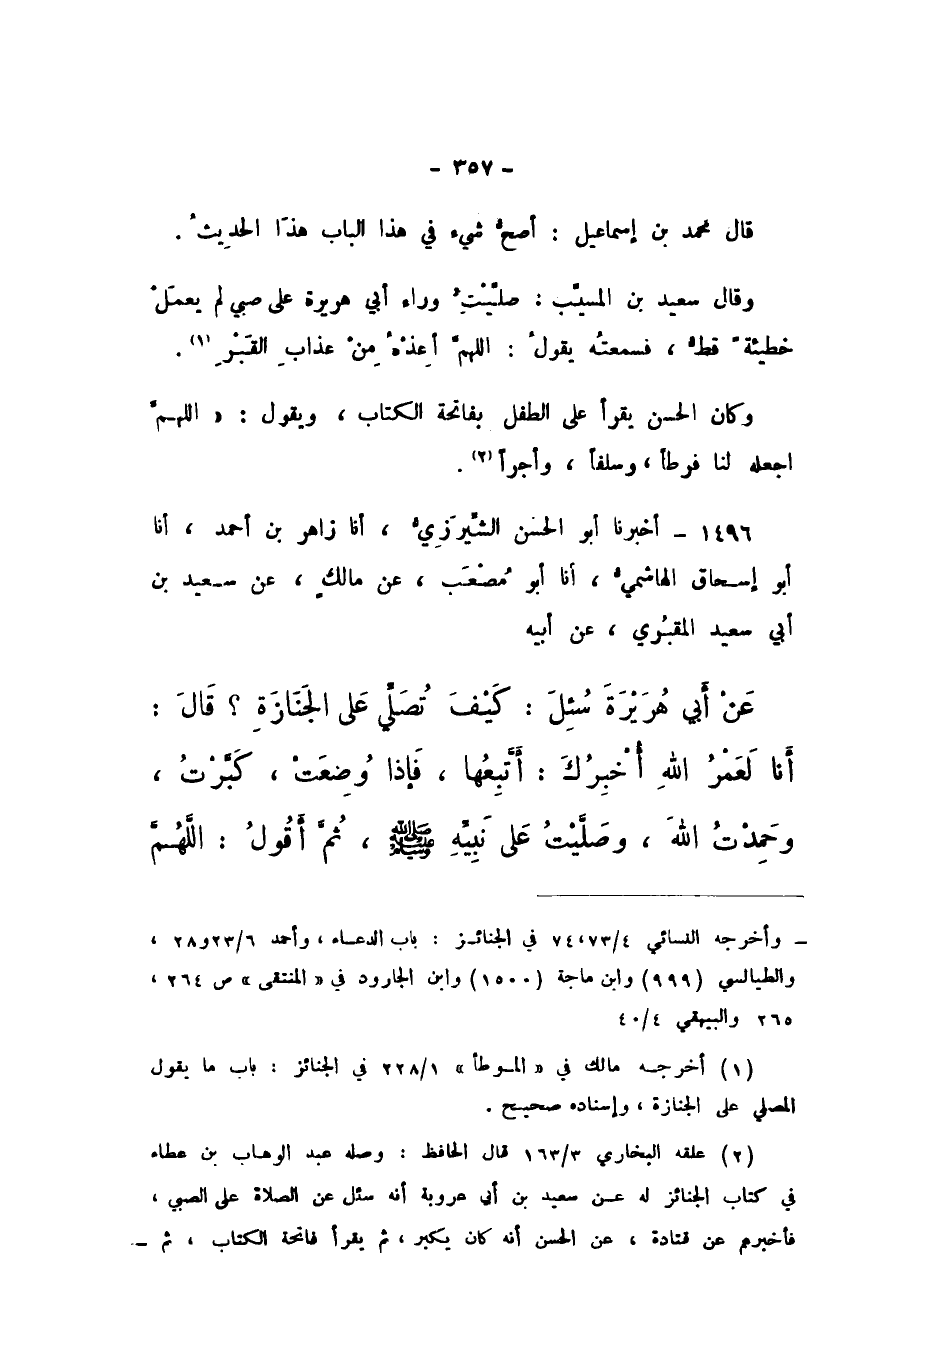 - ٣٥٧ -
قال محمد بن إسماعيل : أصحُّ شيء في هذا الباب هذَا الحديثُ .
وقال سعيد بن المسيَّب : صلَّيْتُ وراء أبي هريرة على صبي لم يعملْ
خطيئةً قطُّ ، فسمعتُه يقولُ : اللهمَّ أعِذْهُ مِنْ عذابِ القَبْرِ (١) .
وكان الحسن يقرأ على الطفل بفاتحة الكتاب ، ويقول : « اللهمَّ
اجعله لنا فرطاً ، وسلفاً ، وأجراً (٢) .
١٤٩٦ - أخبرنا أبو الحسَن الشِّيرَزِيُّ ، أنا زاهر بن أحمد ، أنا
أبو إسحاق الهاشميُّ ، أنا أبو مُصْعَب ، عن مالكٍ ، عن سعيد بن
أبي سعيد المقبُري ، عن أبيه
عَنْ أَبي هُرَيْرَةَ سُئِلَ : كَيْفَ تُصَلِّي عَلى الجَنَازَةِ ؟ قَالَ :
أَنا لَعَمْرُ اللهِ أُخْبِرُكَ : أَتَّبِعُها ، فَإِذا وُضِعَتْ ، كَبَّرْتُ ،
وحَمِدْتُ اللهَ ، وصَلَّيْتُ عَلى نَبِيِّهِ ﷺ ، ثُمَّ أَقُولُ : اللَّهُمَّ
- وأخرجه النسائي ٧٣/٤،٧٤ في الجنائز : باب الدعاء ، وأحمد ٢٣/٦و٢٨ ،
والطيالسي (٩٩٩) وابن ماجة (١٥٠٠) وابن الجارود في « المنتقى » ص ٢٦٤ ،
٢٦٥ والبيهقي ٤٠/٤
(١) أخرجه مالك في « الموطأ » ٢٢٨/١ في الجنائز : باب ما يقول
المصلي على الجنازة ، وإسناده صحيح .
(٢) علقه البخاري ١٦٣/٣ قال الحافظ : وصله عبد الوهاب بن عطاء
في كتاب الجنائز له عن سعيد بن أبي عروبة أنه سئل عن الصلاة على الصبي ،
فأخبرهم عن قتادة ، عن الحسن أنه كان يكبر ، ثم يقرأ فاتحة الكتاب ، ثم -